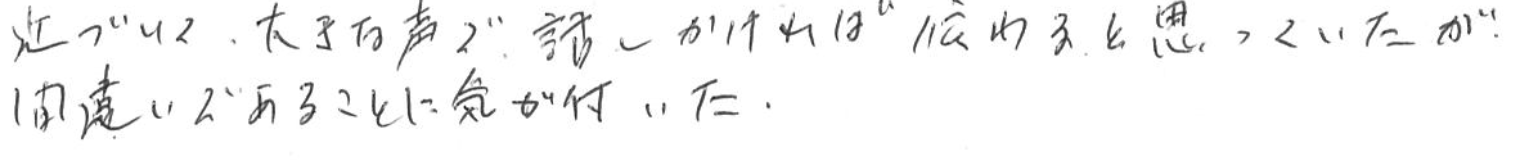 近づいて、大きな声で話しかければ伝わると思っていたが、
間違いであることに気が付いた.